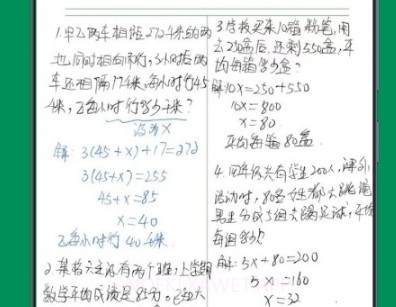 1.甲乙两车相距272千米的两
地同时相向而行,3小时后两
车还相隔17千米,每小时行45
千米,乙每小时行多少千米?
设为X
解:3(45+x)+17=272
3(45+x)=255
45+x=85
x=40
乙每小时行40千米
2.某班 还有两个班,上学期
数学平均成绩是85分。已知
3.学校买来10箱粉笔,用
去250盒后,还剩550盒,平
均每箱多少盒?
解10x=250+550
10x=800
x=80
平均每箱80盒
4.四年级共有学生200人,课外
活动时,80名女生都去跳绳
男生分成5组去踢足球,平均
每组多少人
解:5x+80=200
5x=160
x=32